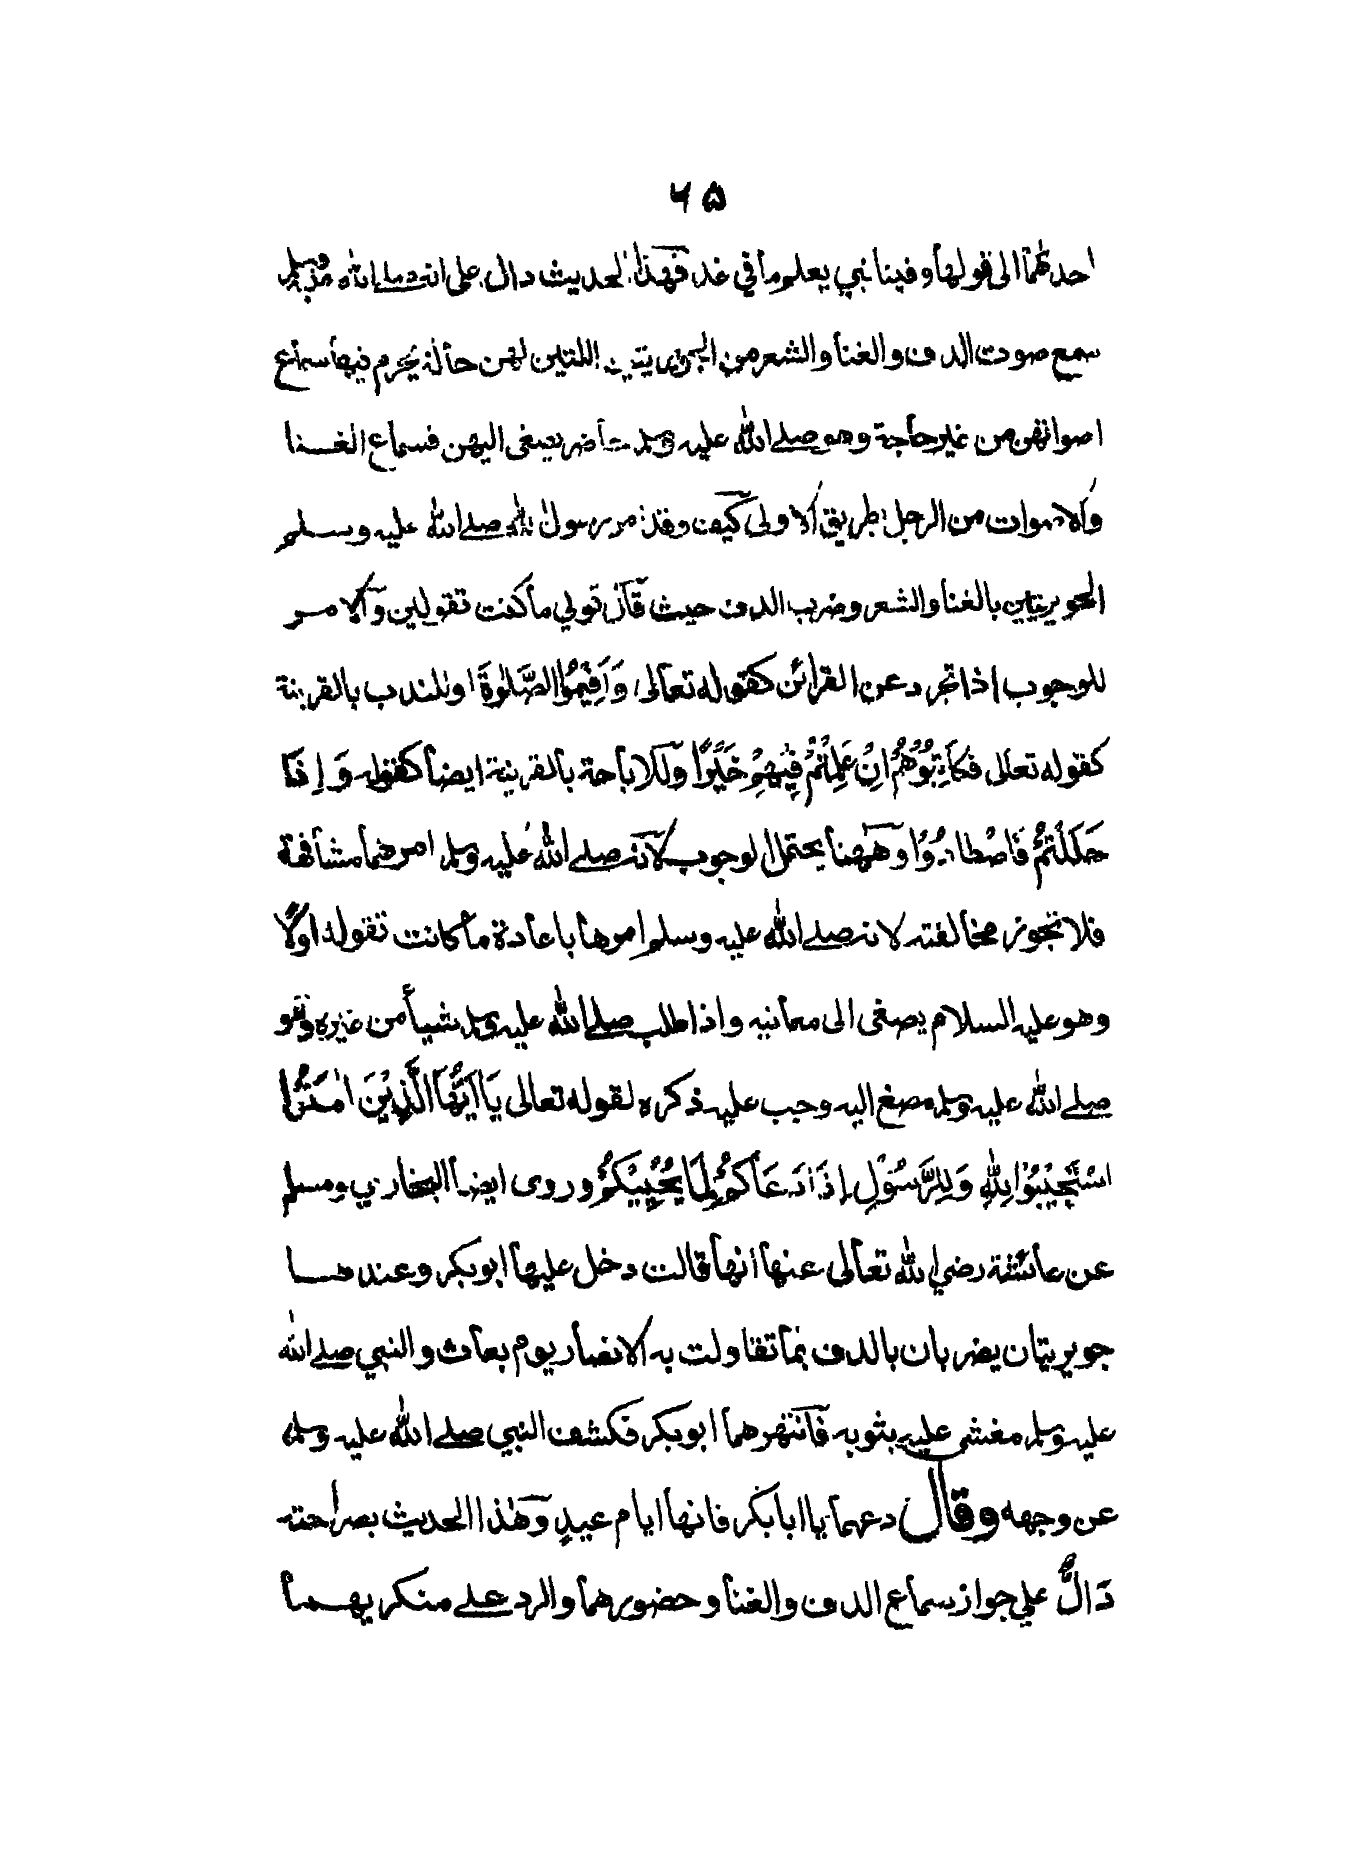 ۶۵
احدٰهما الى قولها وفينا نبي يعلم ما في غد فهٰذا الحديث دال على انه صلے الله عليه وسلم
سمع صوت الدف والغنا والشعر من الجويريتين اللتين لهن حالة يحرم فيها سماع
اصواتهن من غير حاجة وهو صلے الله عليه وسلم حاضر يصغى اليهن فسماع الغنا
والاصوات من الرجل بطريق الاولى كيف وقد امر رسول الله صلے الله عليه وسلم
الجويريتين بالغنا والشعر وضرب الدف حيث قال قولي ما كنت تقولين والامر
للوجوب اذا تجرد عن القرائن كقوله تعالى وَاَقِيْمُوا الصَّلٰوةَ او للندب بالقرينة
كقوله تعالى فكَاتِبُوْهُمْ اِنْ عَلِمْتُمْ فِيْهِمْ خَيْرًا وللاباحة بالقرينة ايضا كقوله وَاِذَا
حَلَلْتُمْ فَاصْطَادُوْا وهٰهنا يحتمل الوجوب لانه صلے الله عليه وسلم امرهما مشافهة
فلا تجوز مخالفته لانه صلے الله عليه وسلم امرها باعادة ما كانت تقوله اولا
وهو عليه السلام يصغى الى معانيه واذا طلب صلے الله عليه وسلم شيأ من غيره وهو
صلے الله عليه وسلم مصغ اليه وجب عليه ذكره لقوله تعالى يَا اَيُّهَا الَّذِيْنَ اٰمَنُوْا
اسْتَجِيْبُوْا لِلّٰهِ وَلِلرَّسُوْلِ اِذَا دَعَاكُمْ لِمَا يُحْيِيْكُمْ وروى ايضا البخاري ومسلم
عن عائشة رضي الله تعالى عنها انها قالت دخل عليها ابو بكر وعندها
جويريتان يضربان بالدف بما تقاولت به الانصار يوم بعاث والنبي صلے الله
عليه وسلم مغشى عليه بثوبه فانتهرهما ابو بكر فكشف النبي صلے الله عليه وسلم
عن وجهه وقال دعهما يا ابا بكر فانها ايام عيدٍ وهٰذا الحديث بصراحته
دَالٌّ علي جواز سماع الدف والغنا وحضورهما والرد علے منكريهما